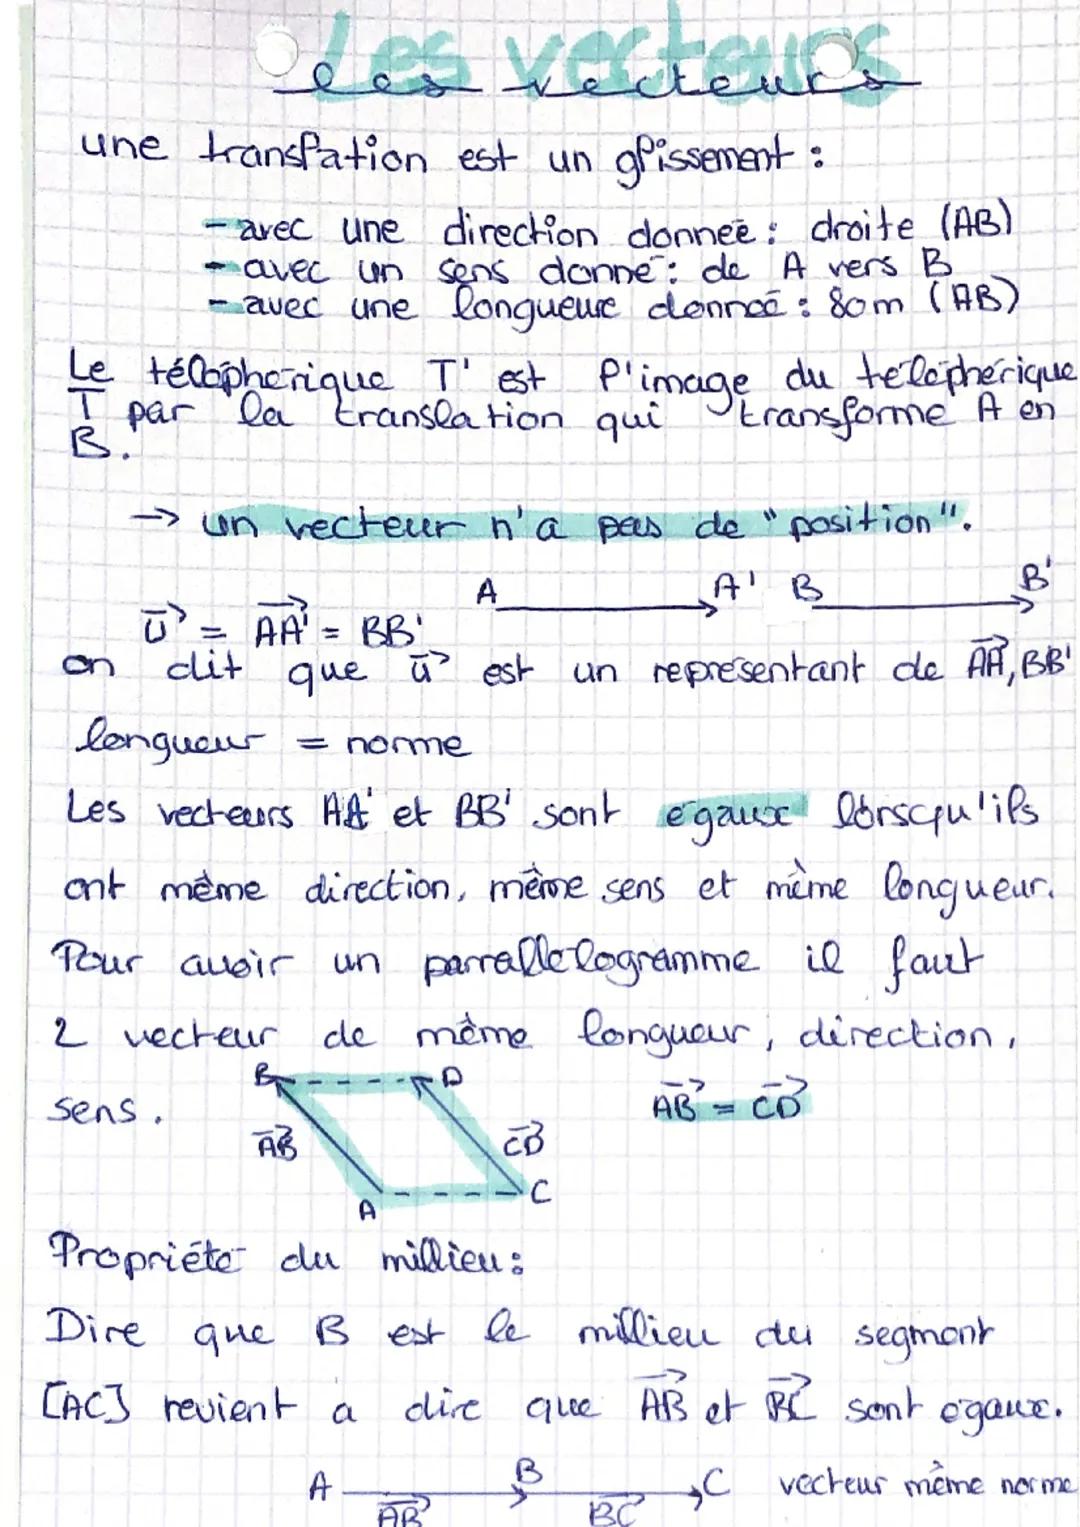 Les vecteurs
les vecteurs
une translation est un glissement :
- avec une direction donneé : droite (AB)
- avec un sens donné : de A vers B
- avec une longueur donneé : 80m (AB)
Le téléphérique T' est l'image du téléphérique
T par la translation qui transforme A en
B.
→ un vecteur n'a pas de "position".
A A' B B'
u⃗ = AA'⃗ = BB'
on dit que u⃗ est un représentant de AA⃗, BB'
longueur = norme
Les vecteurs AA' et BB' sont égaux lorsqu'ils
ont même direction, même sens et même longueur.
Pour avoir un parrallelogramme il faut
2 vecteur de même longueur, direction,
sens.
B D
AB⃗ = CD⃗
AB⃗ CD⃗
A C
Propriété du millieu :
Dire que B est le millieu du segment
[AC] revient a dire que AB⃗ et BC⃗ sont égaux.
A B C vecteur même norme
AB⃗ BC⃗